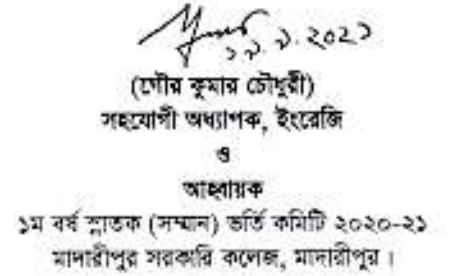 ১৯.৯.২০২১
(গৌর কুমার চৌধুরী)
সহযোগী অধ্যাপক, ইংরেজি
ও
আহবায়ক
১ম বর্ষ স্নাতক (সম্মান) ভর্তি কমিটি ২০২০-২১
মাদারীপুর সরকারি কলেজ, মাদারীপুর।